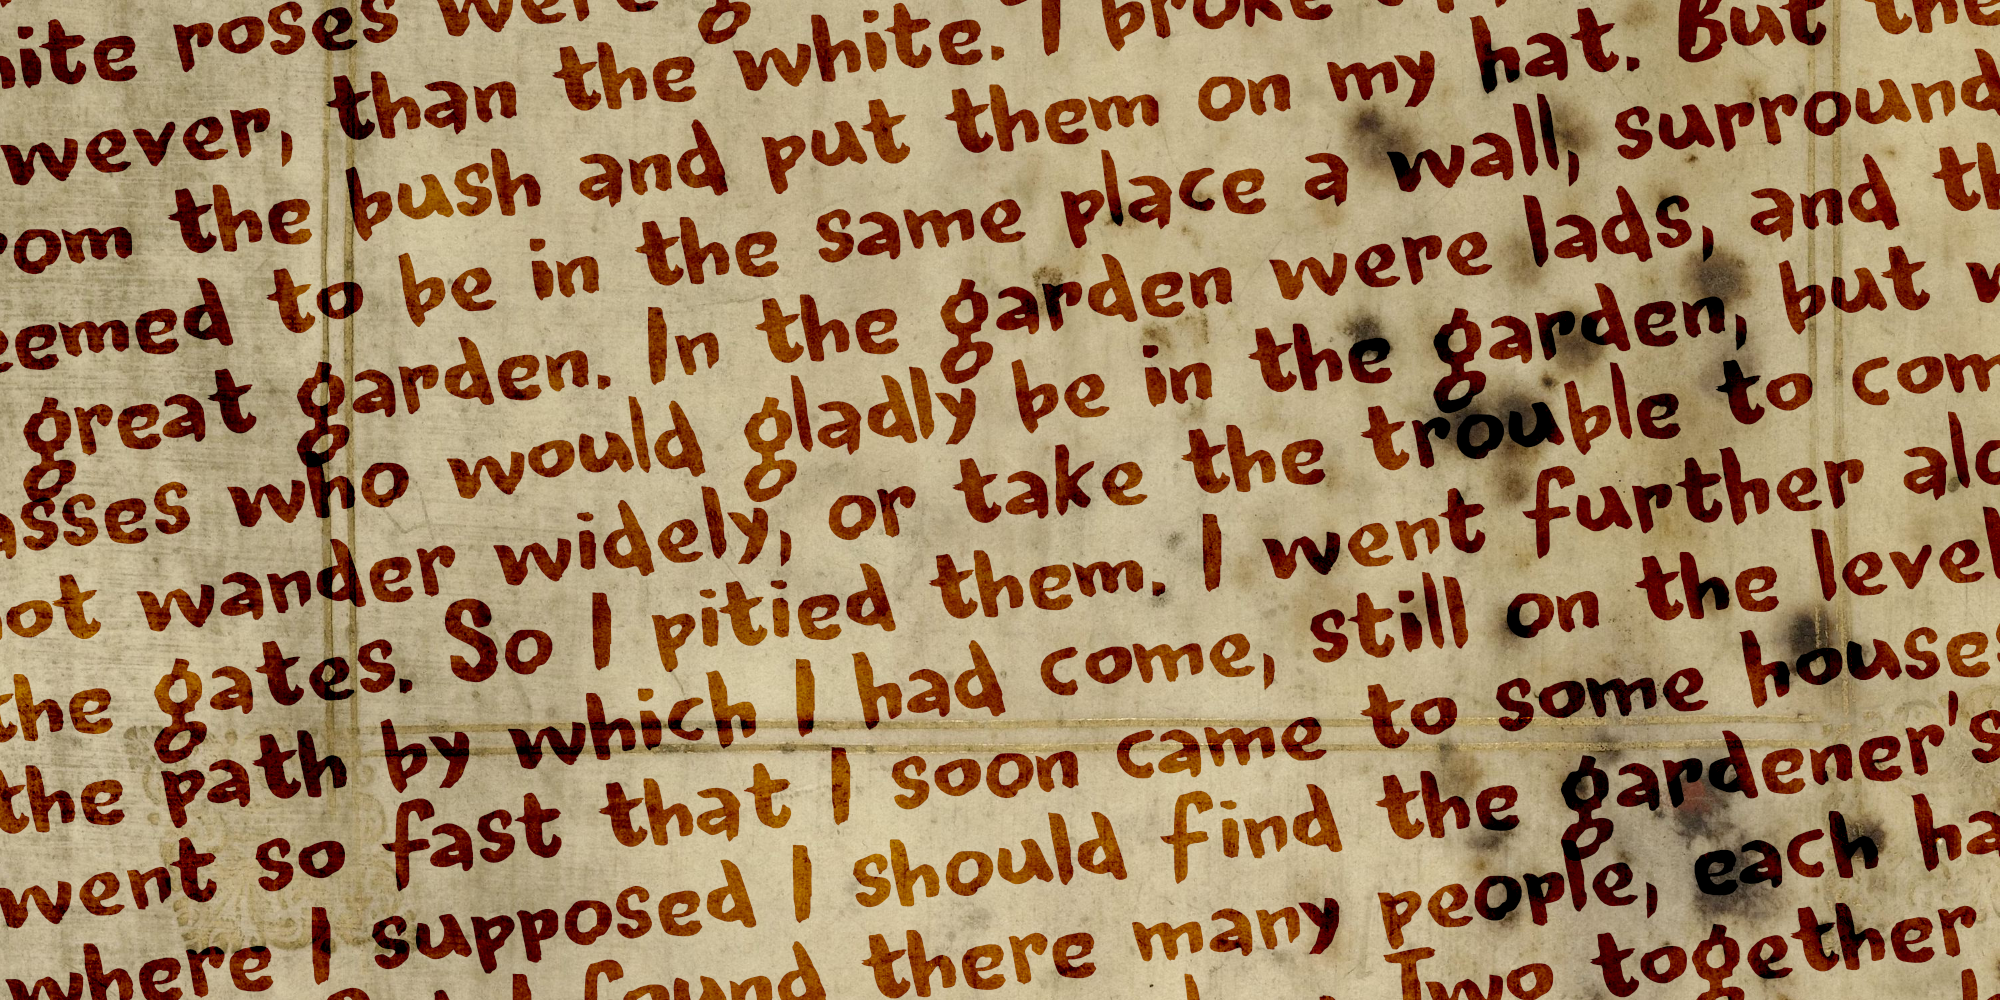 ite roses were g
wever, than the white. I broke
rom the bush and put them on my hat. But the
eemed to be in the same place a wall, surround
great garden. In the garden were lads, and th
asses who would gladly be in the garden, but w
ot wander widely, or take the trouble to com
the gates. So I pitied them. I went further alo
the path by which I had come, still on the level
went so fast that I soon came to some houses
where I supposed I should find the gardener's
I found there many people, each ha
Two together